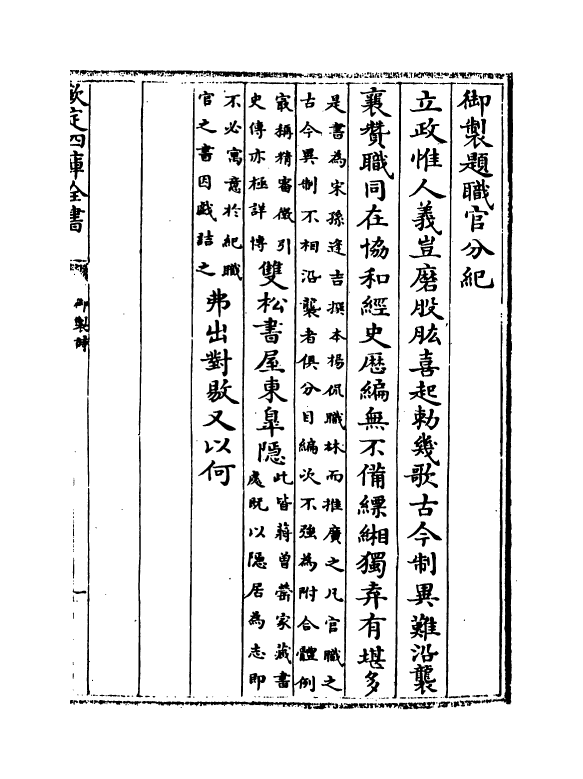 御製題職官分紀
立政惟人義豈磨股肱喜起勅幾歌古今制異難沿襲
襄賛職同在協和經史歴編無不備縹緗獨弆有堪多
是書為宋孫逢吉撰本楊侃職林而推廣之凡官職之
古今異制不相沿襲者俱分目編次不強為附合體例
㝡稱精審徵引
史傳亦極詳博
雙松書屋東臯隱
此皆蔣曾罃家藏書
處既以隱居為志即
不必寓意於紀職
官之書因戲詰之
弗出對敭又以何
欽定四庫全書
御製詩
一